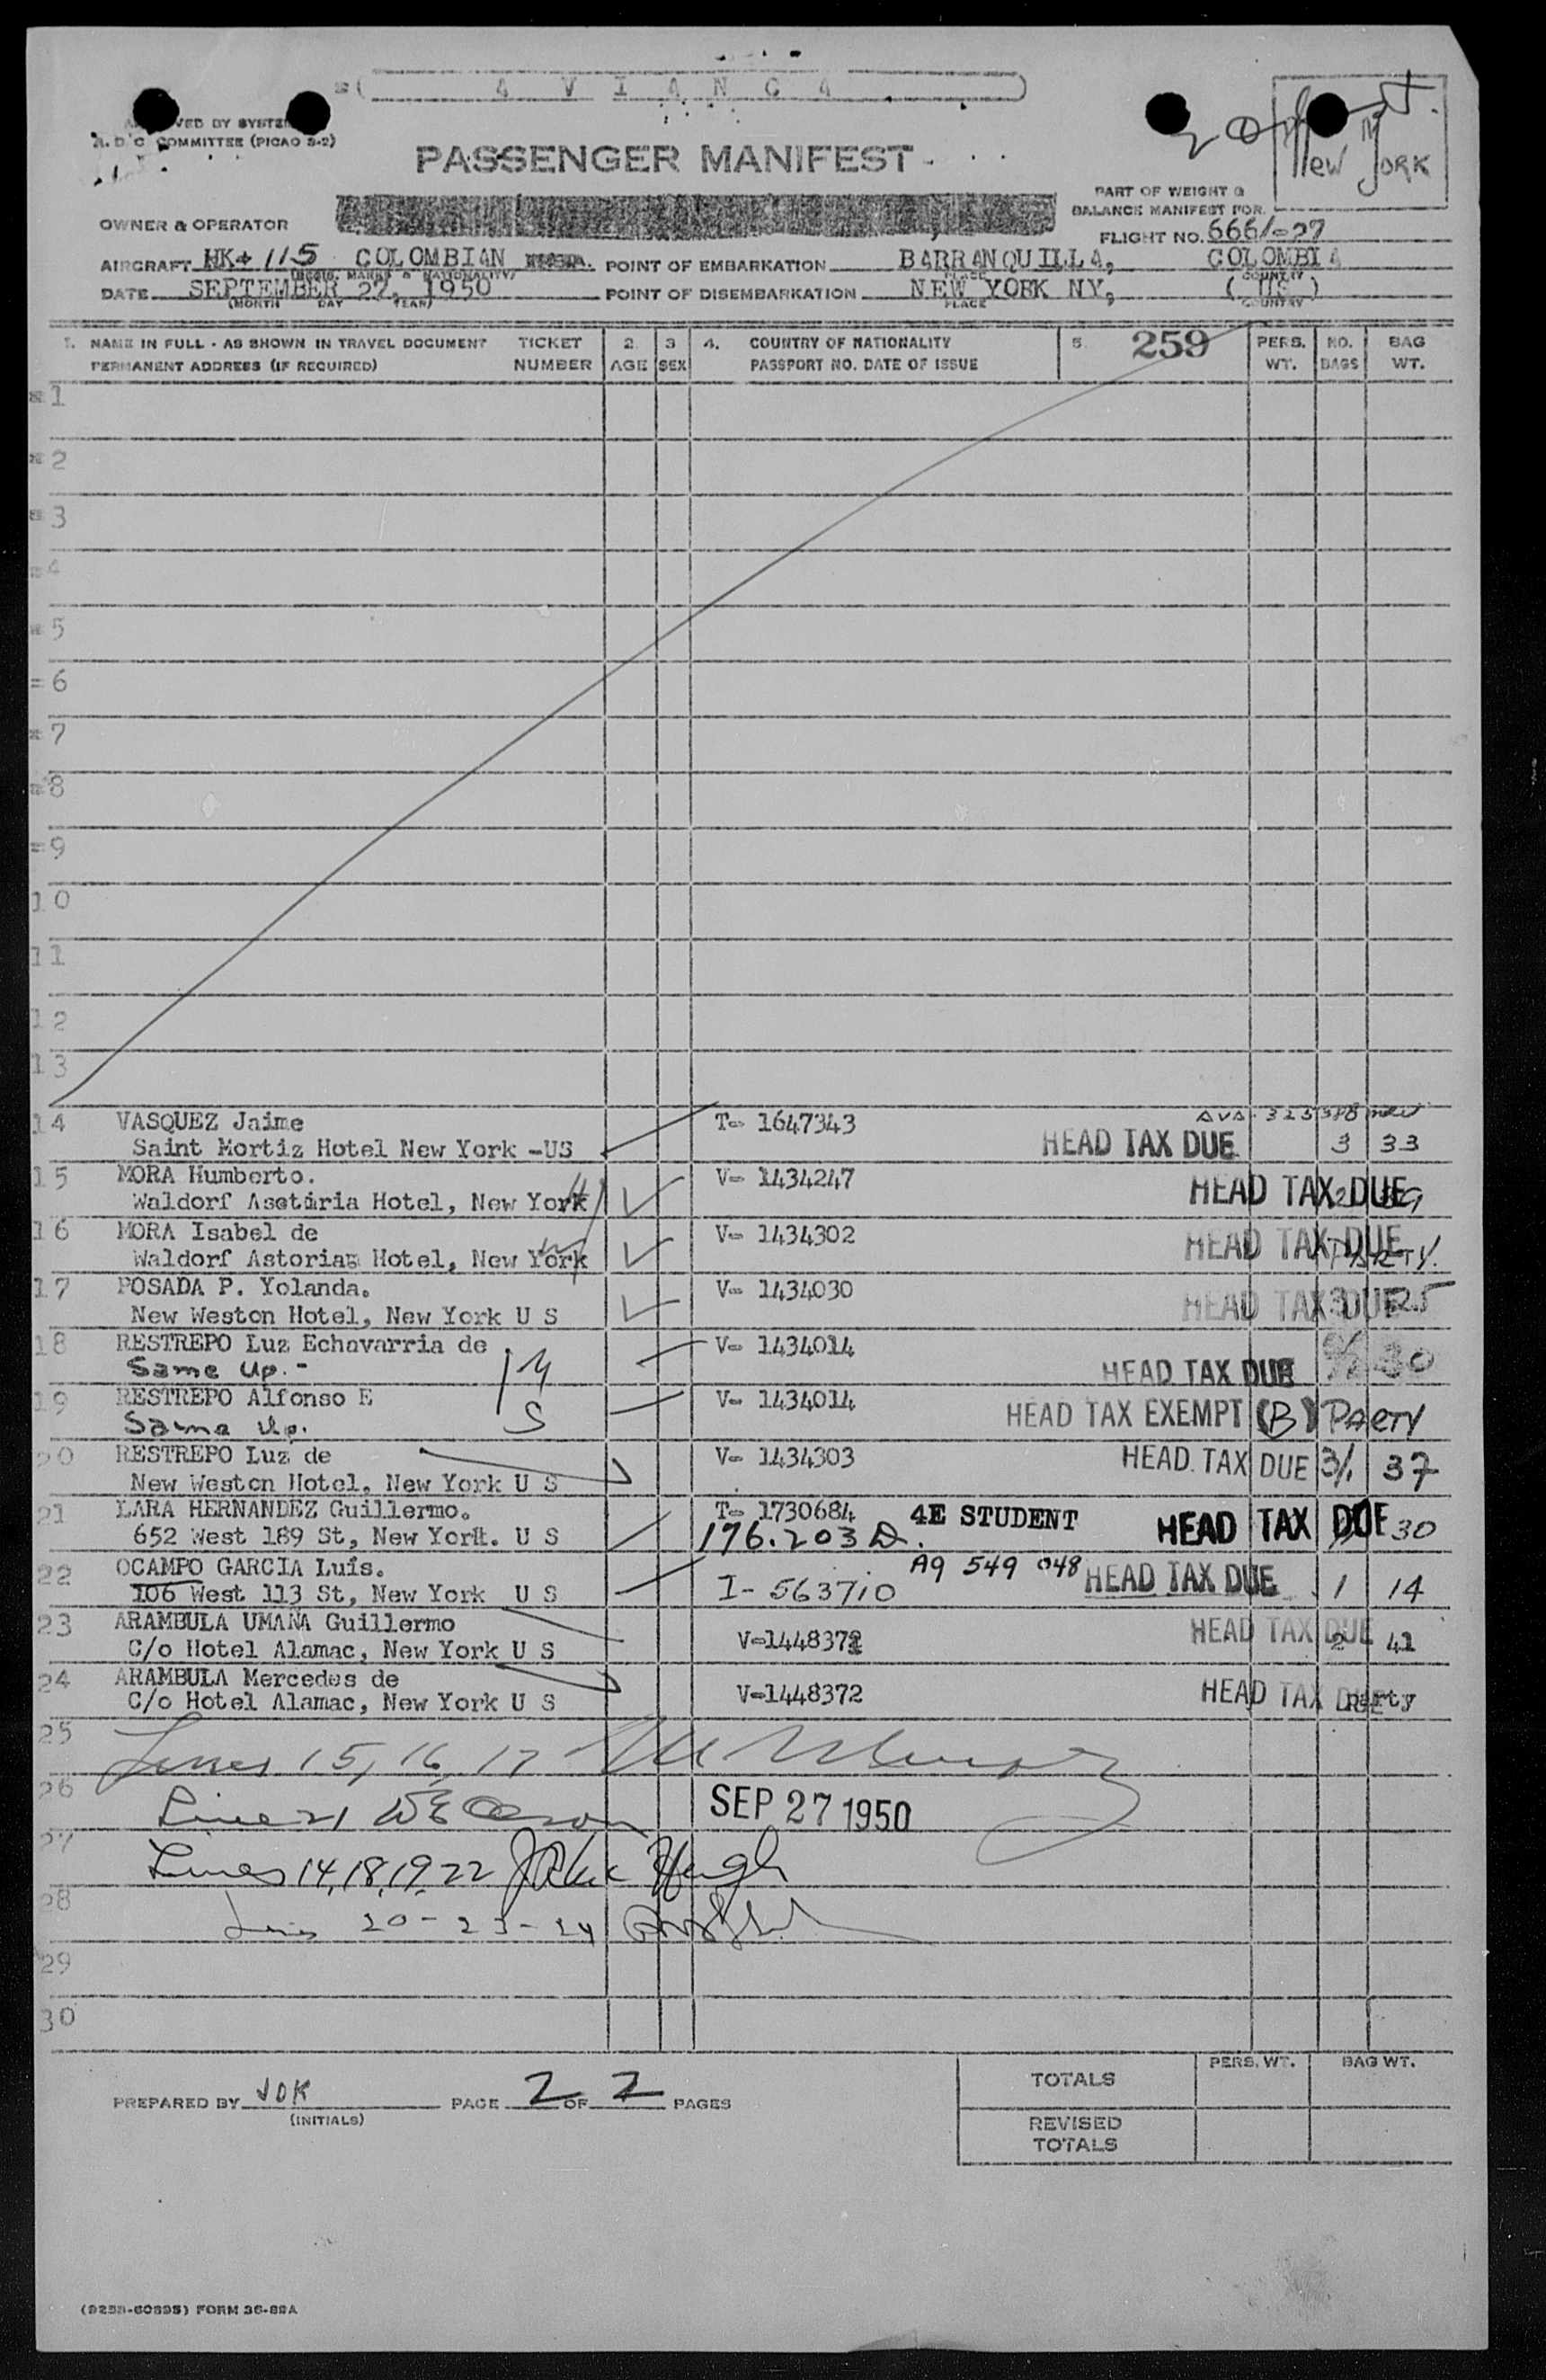 A V I A N C A
APPROVED BY SYSTEM
A.D.C. COMMITTEE (PICAO S-2)
PASSENGER MANIFEST
New York
PART OF WEIGHT &
BALANCE MANIFEST FOR
OWNER & OPERATOR
FLIGHT NO. 666/-27
AIRCRAFT HK-115 COLOMBIAN POINT OF EMBARKATION BARRANQUILLA, COLOMBIA
(REGIS. MARKS & NATIONALITY) PLACE COUNTRY
DATE SEPTEMBER 27, 1950 POINT OF DISEMBARKATION NEW YORK NY, ( US )
(MONTH DAY YEAR) PLACE COUNTRY
1. NAME IN FULL - AS SHOWN IN TRAVEL DOCUMENT TICKET 2. 3 4. COUNTRY OF NATIONALITY 5. 259 PERS. NO. BAG
PERMANENT ADDRESS (IF REQUIRED) NUMBER AGE SEX PASSPORT NO. DATE OF ISSUE WT. BAGS WT.
1
2
3
4
5
6
7
8
9
10
11
12
13
14 VASQUEZ Jaime T- 1647343
Saint Mortiz Hotel New York -US HEAD TAX DUE 3 33
15 MORA Humberto. V- 1434247
Waldorf Asetária Hotel, New York HEAD TAX DUE
16 MORA Isabel de V- 1434302
Waldorf Astoria Hotel, New York HEAD TAX DUE PARTY.
17 POSADA P. Yolanda. V- 1434030
New Weston Hotel, New York U S HEAD TAX DUE
18 RESTREPO Luz Echavarria de V- 1434014
Same Up.- M HEAD TAX DUE 30
19 RESTREPO Alfonso E V- 1434014
Same Up. S HEAD TAX EXEMPT (B) PARTY
20 RESTREPO Luz de V- 1434303 HEAD TAX DUE 3/1 37
New Weston Hotel, New York U S
21 LARA HERNANDEZ Guillermo. T- 1730684 4E STUDENT
652 West 189 St, New York. U S 176.203 D. HEAD TAX DUE 30
22 OCAMPO GARCIA Luis. A9 549 048
106 West 113 St, New York U S I- 563710 HEAD TAX DUE 1 14
23 ARAMBULA UMAÑA Guillermo HEAD TAX DUE
C/o Hotel Alamac, New York U S V-1448371 2 41
24 ARAMBULA Mercedes de
C/o Hotel Alamac, New York U S V-1448372 HEAD TAX DUE party
25 Lines 15, 16, 17
26 Line 21 SEP 27 1950
27 Lines 14, 18, 19, 22
28 Lines 20 - 23 - 24
29
30
TOTALS PERS. WT. BAG WT.
PREPARED BY JOK PAGE 2 OF 2 PAGES
(INITIALS)
REVISED
TOTALS
FORM 36-88A